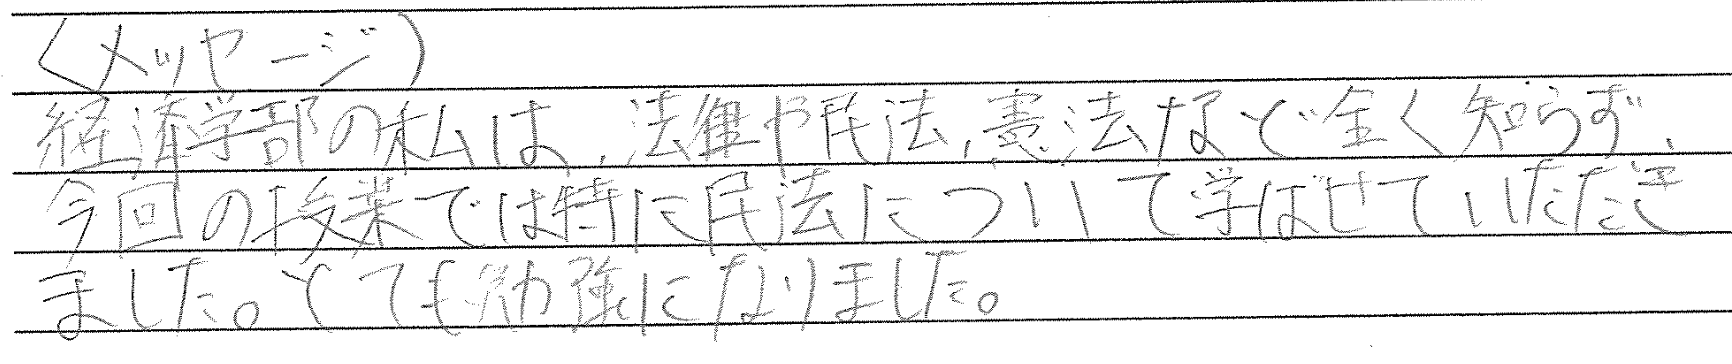 〈メッセージ〉
経済学部の私は、法律や民法、憲法など全く知らず、
今回の授業では特に民法について学ばせていただき
ました。とても勉強になりました。